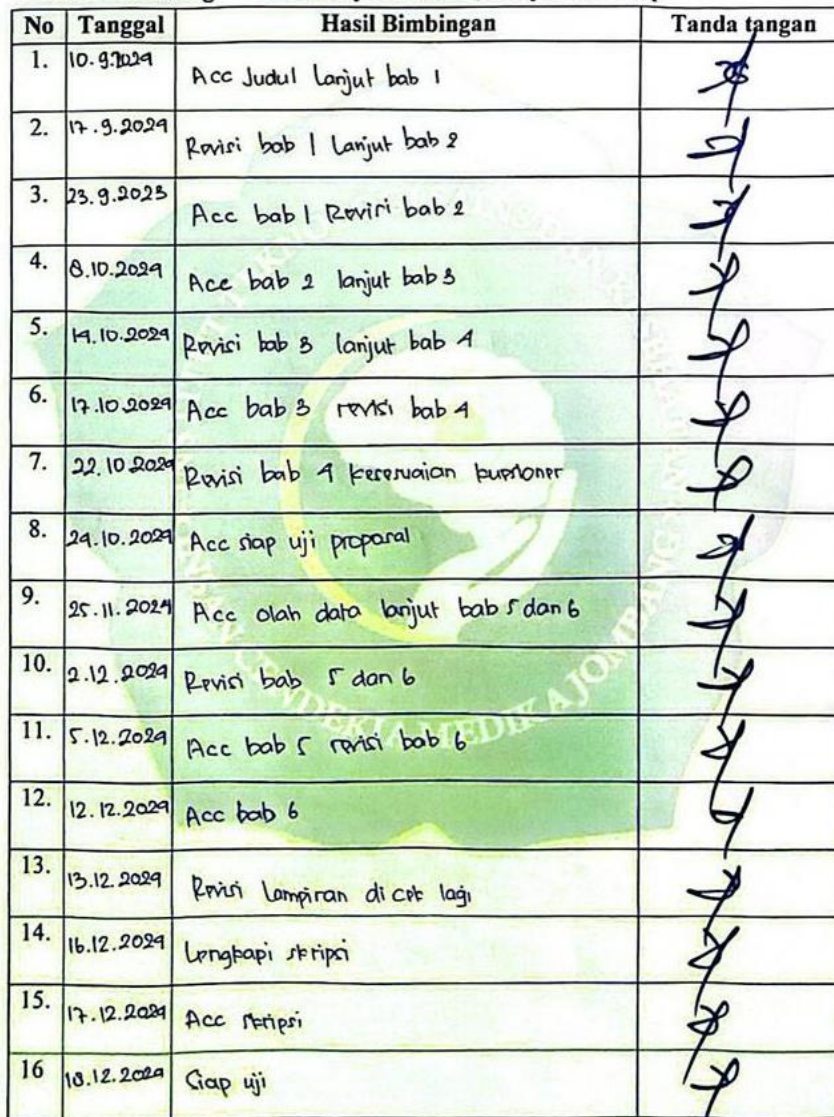 No Tanggal Hasil Bimbingan Tanda tangan
1. 10.9.2024 Acc Judul Lanjut bab 1
2. 17.9.2024 Revisi bab 1 Lanjut bab 2
3. 23.9.2023 Acc bab 1 Revisi bab 2
4. 8.10.2024 Acc bab 2 lanjut bab 3
5. 14.10.2024 Revisi bab 3 lanjut bab 4
6. 17.10.2024 Acc bab 3 revisi bab 4
7. 22.10.2024 Revisi bab 4 kesesuaian kuesioner
8. 24.10.2024 Acc siap uji proposal
9. 25.11.2024 Acc olah data lanjut bab 5 dan 6
10. 2.12.2024 Revisi bab 5 dan 6
11. 5.12.2024 Acc bab 5 revisi bab 6
12. 12.12.2024 Acc bab 6
13. 13.12.2024 Revisi Lampiran di cek lagi
14. 16.12.2024 Lengkapi skripsi
15. 17.12.2024 Acc skripsi
16 18.12.2024 Siap uji